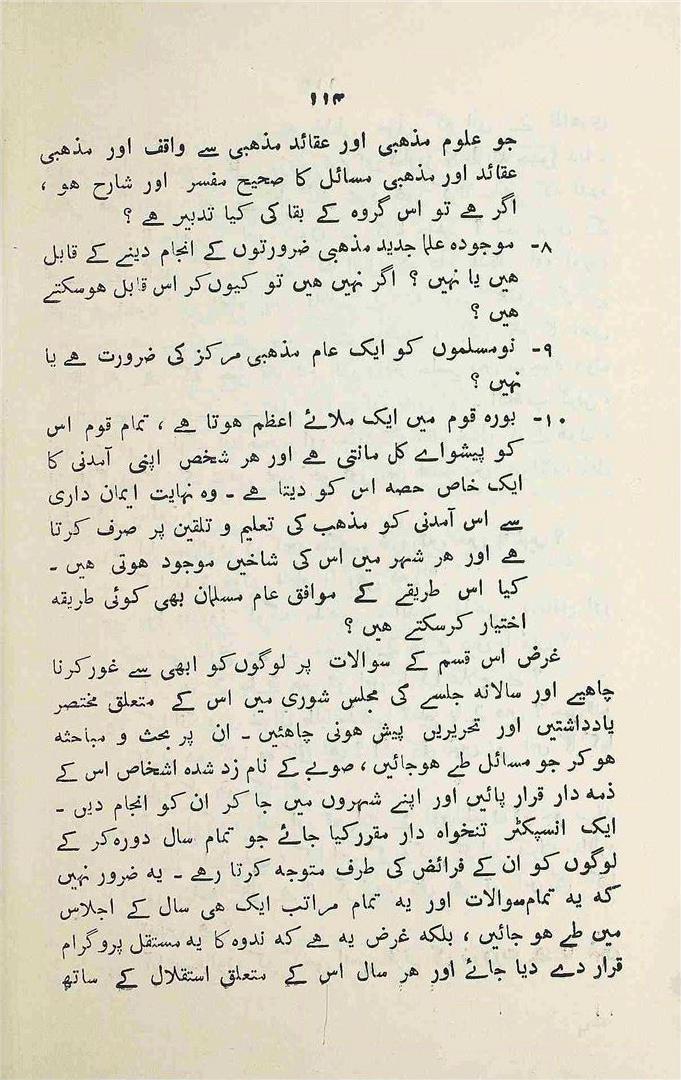 ۱۱۴
جو علوم مذھبی اور عقائد مذھبی سے واقف اور مذھبی
عقائد اور مذھبی مسائل کا صحیح مفسر اور شارح ھو ،
اگر ھے تو اس گروہ کے بقا کی کیا تدبیر ھے ؟
۸- موجودہ علما جدید مذھبی ضرورتوں کے انجام دینے کے قابل
ھیں یا نہیں ؟ اگر نہیں ھیں تو کیوں کر اس قابل ھوسکتے
ھیں ؟
۹- نومسلموں کو ایک عام مذھبی مرکز کی ضرورت ھے یا
نہیں ؟
۱۰- بورہ قوم میں ایک ملائے اعظم ھوتا ھے ، تمام قوم اس
کو پیشوائے کل مانتی ھے اور ھر شخص اپنی آمدنی کا
ایک خاص حصہ اس کو دیتا ھے - وہ نہایت ایمان داری
سے اس آمدنی کو مذھب کی تعلیم و تلقین پر صرف کرتا
ھے اور ھر شہر میں اس کی شاخیں موجود ھوتی ھیں -
کیا اس طریقے کے موافق عام مسلمان بھی کوئی طریقہ
اختیار کرسکتے ھیں ؟
غرض اس قسم کے سوالات پر لوگوں کو ابھی سے غور کرنا
چاھیے اور سالانہ جلسے کی مجلس شوری میں اس کے متعلق مختصر
یادداشتیں اور تحریریں پیش ھونی چاھئیں - ان پر بحث و مباحثہ
ھو کر جو مسائل طے ھوجائیں ، صوبے کے نام زد شدہ اشخاص اس کے
ذمہ دار قرار پائیں اور اپنے شہروں میں جا کر ان کو انجام دیں -
ایک انسپکٹر تنخواہ دار مقرر کیا جائے جو تمام سال دورہ کر کے
لوگوں کو ان کے فرائض کی طرف متوجہ کرتا رھے - یہ ضرور نہیں
کہ یہ تمام سوالات اور یہ تمام مراتب ایک ھی سال کے اجلاس
میں طے ھو جائیں ، بلکہ غرض یہ ھے کہ ندوہ کا یہ مستقل پروگرام
قرار دے دیا جائے اور ھر سال اس کے متعلق استقلال کے ساتھ